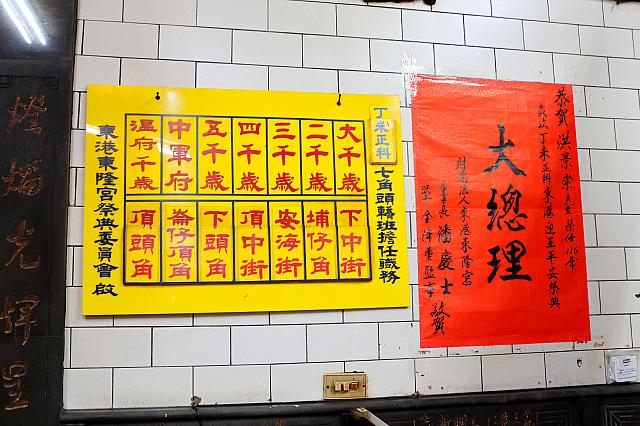 恭賀 洪景崇先生 榮任116年
歲次丁未正科東港迎王平安祭典
大總理
財團法人東港東隆宮
董事長 潘慶士
暨全體董監事 敬賀
丁未正科七角頭轄班擔任職務
大千歲 下中街
二千歲 埔仔角
三千歲 安海街
四千歲 頂中街
五千歲 下頭角
中軍府 崙仔頂角
溫府千歲 頂頭角
東港東隆宮祭典委員會 啟
燈燭光輝呈